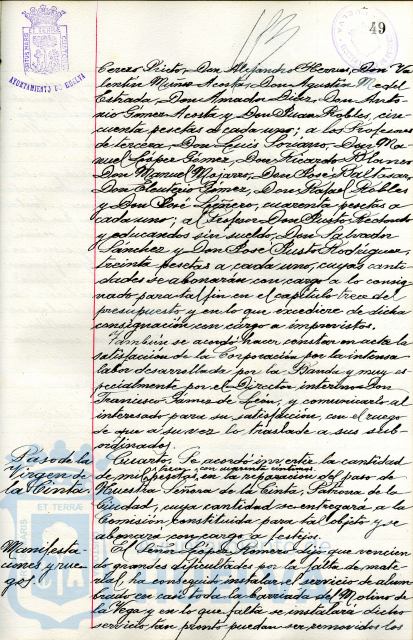 49
AYUNTAMIENTO DE HUELVA
Cerezo Prieto, Don Alejandro Herrero, Don Va-
lentín Muñoz Acosta, Don Agustín Medel
Estrada, Don Amador Don Anto-
nio Gómez Acosta y Don Juan Robles, cin-
cuenta pesetas a cada uno; a los Profesores
de tercera, Don Luis Soriano, Don Ma-
nuel López Gómez, Don Ricardo Blanes
Don Manuel Mojarro, Don José Baltasar,
Don Eleuterio Gómez, Don Rafael Robles
y Don José cuarenta pesetas a
cada uno; a Don Justo
y educandos sin sueldo, Don Salvador
Sánchez y Don José Justo Rodríguez,
treinta pesetas a cada uno, cuyas canti-
dades se abonarán con cargo a lo consig-
nado para tal fin en el capítulo trece del
presupuesto y en lo que excediere de dicha
consignación con cargo a imprevistos.
También se acordó hacer constar en acta la
satisfacción de la Corporación por la intensa
labor desarrollada por la Banda y muy es-
pecialmente por el Director interino Don
Francisco Gómez de León, y comunicarlo al
interesado para su satisfacción, con el ruego
de que a su vez lo traslade a sus sub-
ordinados.
Paso de la
Virgen de
la Cinta.
Cuarto. Se acordó invertir la cantidad
con cuarenta céntimos
de mil pesetas, en la reparación del paso de
Nuestra Señora de la Cinta, Patrona de la
Ciudad, cuya cantidad se entregará a la
Comisión constituida para tal objeto y se
abonará con cargo a festejos.
Manifesta-
ciones y rue-
gos.
El Señor López Romero dijo que vencien-
do grandes dificultades por la falta de mate-
rial, ha conseguido instalar el servicio de alum-
brado en casi toda la barriada del Molino de
la Vega y en lo que falta se instalará dicho
servicio tan pronto puedan ser removidos los